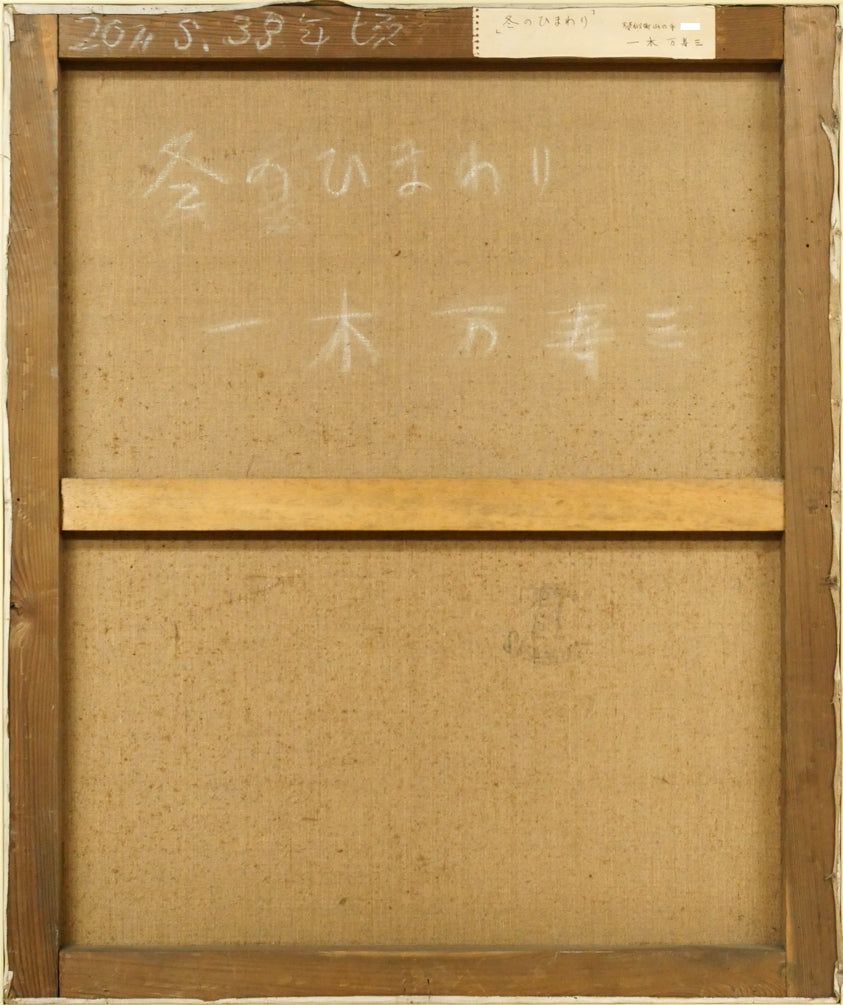 20号 S.38年頃
「冬のひまわり」
一木万寿三
冬のひまわり
一木万寿三